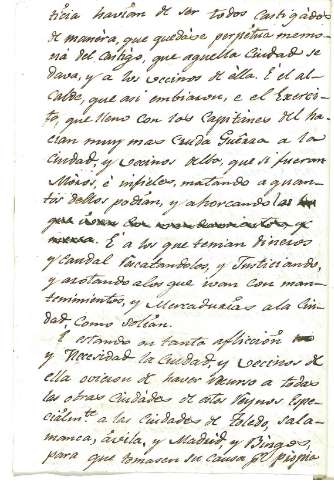 ticia havian de ser todos Castigados
de manera, que quedase perpetua memo-
ria del Castigo, que aquella Ciudad se
dava, y a los vecinos de ella. E el al-
calde, que asi embiaron, e el Exerci-
to, que llevo con los Capitanes del ha-
cian muy mas Cruda Guerra a la
Ciudad, y Vecinos della, que si fueran
Moros, è infieles, matando a quan-
tos dellos podian, y ahorcando
que
E a los que tenian Dineros
y Caudal Rescatandolos, y Justiciando,
y azotando a los que ivan con man-
tenimientos, y Mercadurias a la Ciu-
dad, como solian.
E estando en tanta aflicción
y Necesidad la Ciudad, y vecinos de
ella ovieron de haver recurso a todas
las otras Ciudades de estos Reynos Espe-
cialm.te a las Ciudades de Toledo, Sala-
manca, Avila, y Madrid, y Burgos,
para que tomasen su causa por propia